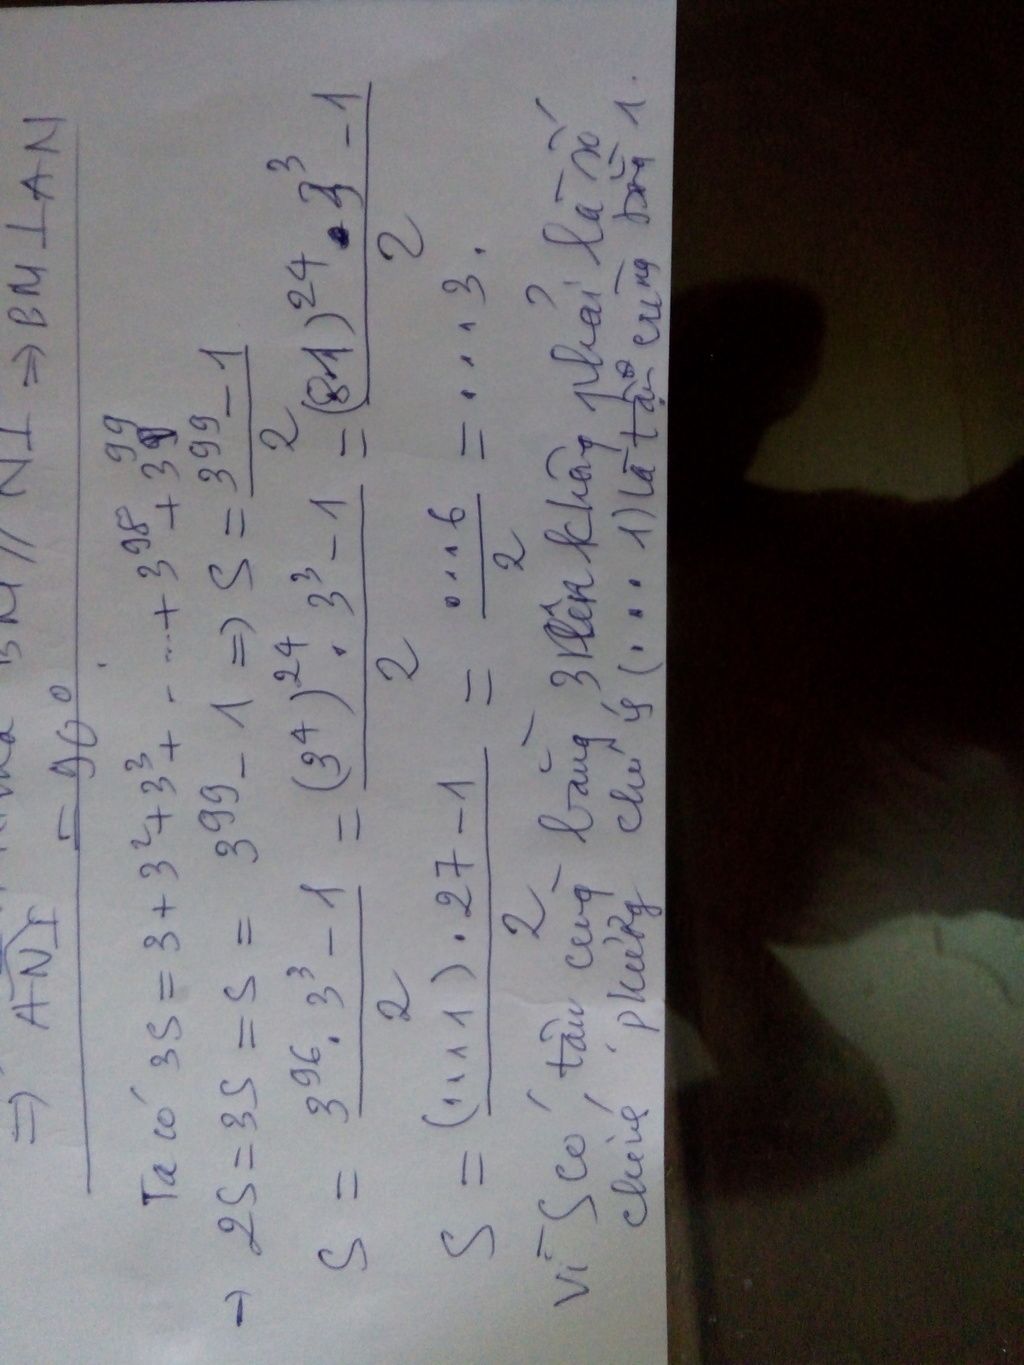 BM // NI => BM ⊥ AN
=> ANI = 90°
Ta có 3S = 3 + 3² + 3³ + ... + 3⁹⁸ + 3⁹⁹
→ 2S = 3S = S = 3⁹⁹ - 1 => S = (3⁹⁹ - 1)/2
S = (3⁹⁶ . 3³ - 1)/2 = ((3⁴)²⁴ . 3³ - 1)/2 = ((81)²⁴ . 3³ - 1)/2
S = ((...1) . 27 - 1)/2 = ...6/2 = ...3.
Vì S có tần cùng bằng 3 nên không phải là số
chính phương chú ý (...1) là tần cùng bằng 1.